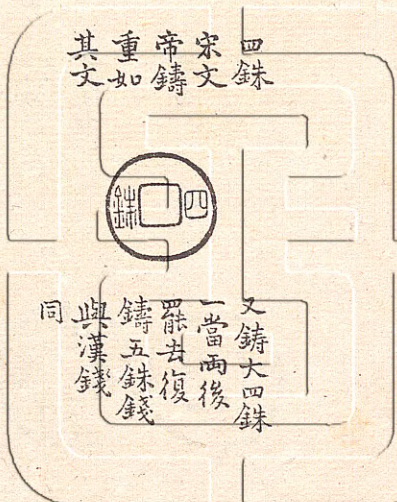 四銖
宋文
帝鑄
重如
其文
四銖
又鑄大四銖
一當兩後
罷去復
鑄五銖錢
與漢錢
同